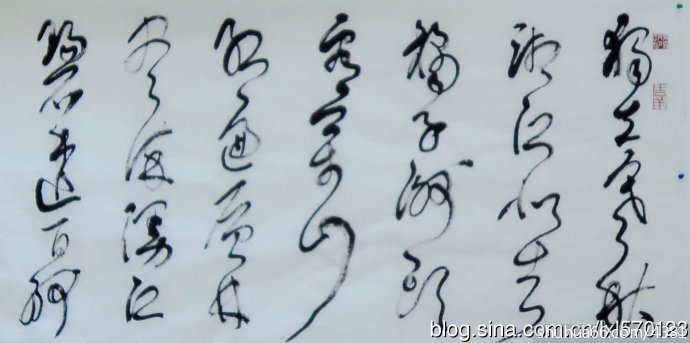 独立寒秋
湘江北去
橘子洲头
看万山
红遍层林
尽染漫江
碧透百舸
blog.sina.com.cn/lxl570123